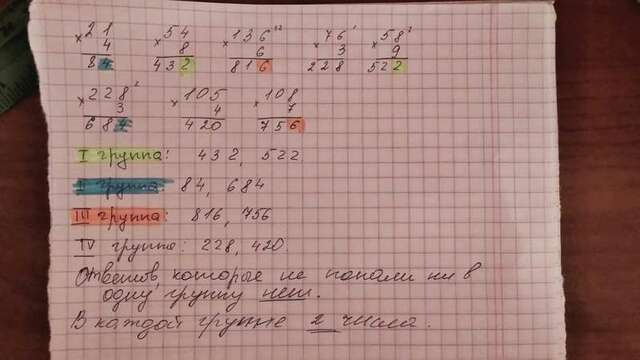 21 54 136 ¹³ 76 ¹ 58 ⁷
× 4 × 8 × 6 × 3 × 9
84 432 816 228 522
228 ² 105 108
× 3 × 4 × 7
684 420 756
I группа: 432, 522
II группа 84, 684
III группа: 816, 756
IV группа: 228, 420.
Ответов, которые не попали ни в
одну группу нет.
В каждой группе 2 числа.